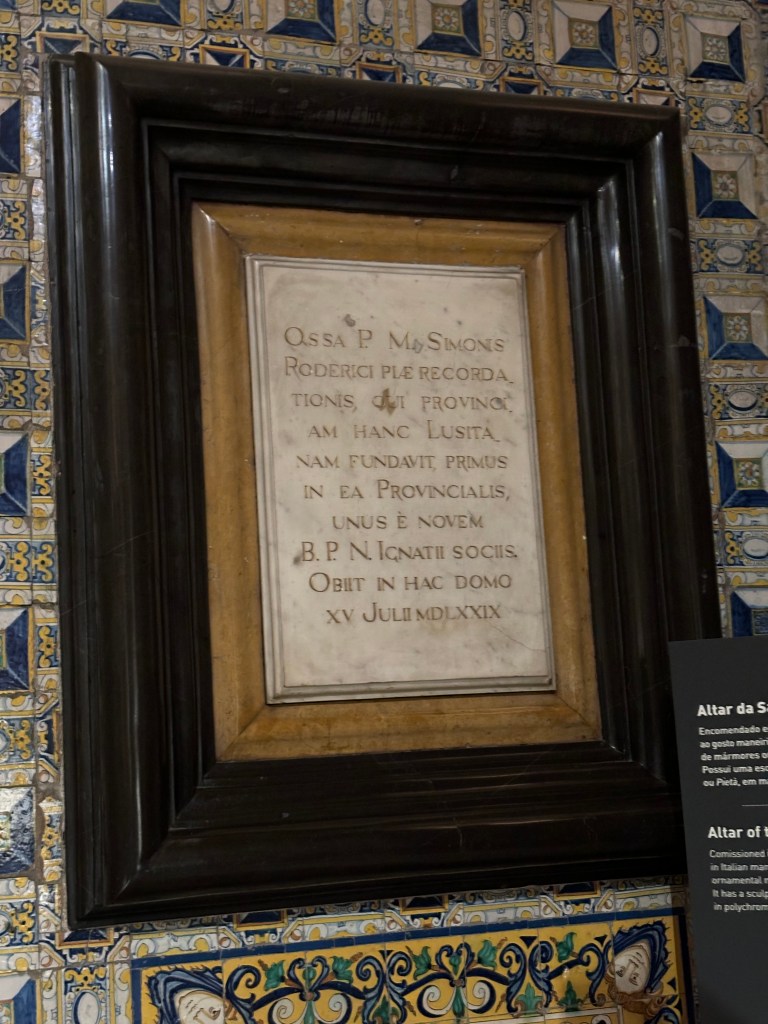 OSSA P. M. SIMONIS
RODERICI PIÆ RECORDA_
TIONIS, QUI PROVINCI_
AM HANC LUSITA_
NAM FUNDAVIT, PRIMUS
IN EA PROVINCIALIS,
UNUS È NOVEM
B. P. N. IGNATII SOCIIS.
OBIIT IN HAC DOMO
XV JULII MDLXXIX
Altar da
Encomendado
ao gosto
de mármores
Possui uma
ou Pietà, em
Altar of
Comissioned
in Italian
ornamental
It has a
in